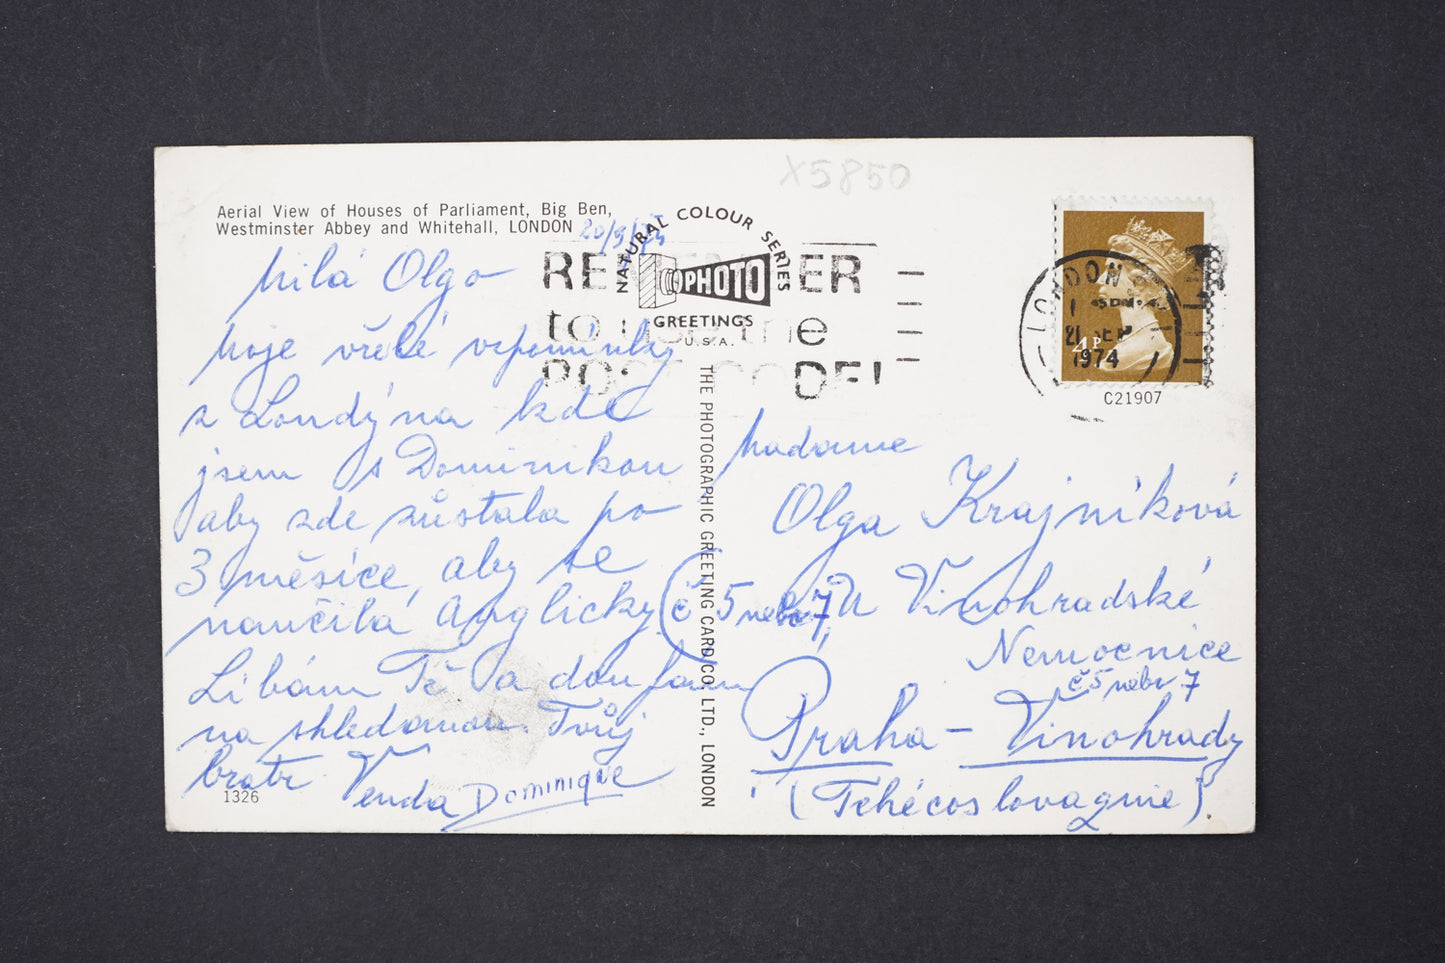 X5850
Aerial View of Houses of Parliament, Big Ben,
Westminster Abbey and Whitehall, LONDON
20/9/74
Milá Olgo
Moje vřelé vzpomínky
z Londýna kde
jsem s Dominikou
aby zde zůstala po
3 měsíce, aby se
naučila Anglicky
Libám Tě a doufám
na shledanou. Tvůj
bratr Venda Dominique
1326
NATURAL COLOUR SERIES
PHOTO
GREETINGS
U.S.A.
REMEMBER
to use the
POST CODE!
THE PHOTOGRAPHIC GREETING CARD CO. LTD., LONDON
LONDON
21 SEP
1974
4P
C21907
Madame
Olga Krajníková
(č 5 nebo 7, U Vinohradské
Nemocnice
č 5 nebo 7
Praha - Vinohrady
(Tchécoslovaquie)